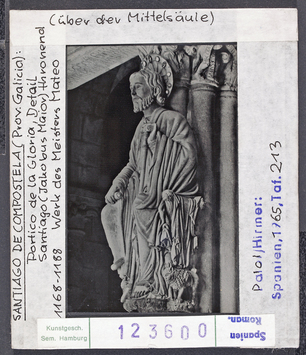 (über der Mittelsäule)
SANTIAGO DE COMPOSTELA (Prov. Galicio):
Portico de la Gloria, Detail
Santiago (Jakobus Maior) thronend
1168-1188 Werk des Meisters Mateo
Palol/Hirmer:
Spanien, 1965, Taf. 213
Kunstgesch.
Sem. Hamburg
123600
Spanien
Roman.